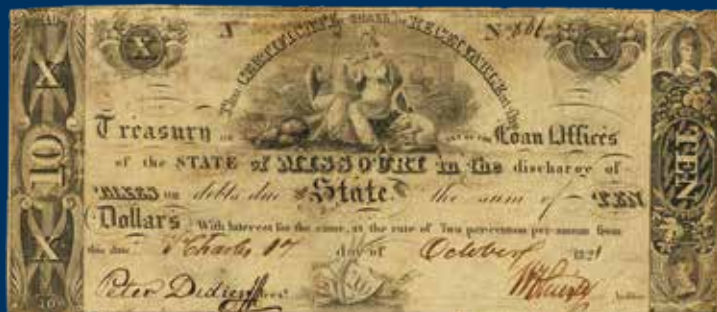 X X
No 
This CERTIFICATE SHALL be RECEIVABLE at the
Treasury or any of the Loan Offices
of the STATE of MISSOURI in the discharge of
TAXES or debts due the State. the sum of TEN
Dollars With Interest for the same, at the rate of Two per centum per annum from
this date. St Charles 17 day of October 1821
Peter Didier
X
10
X
TEN